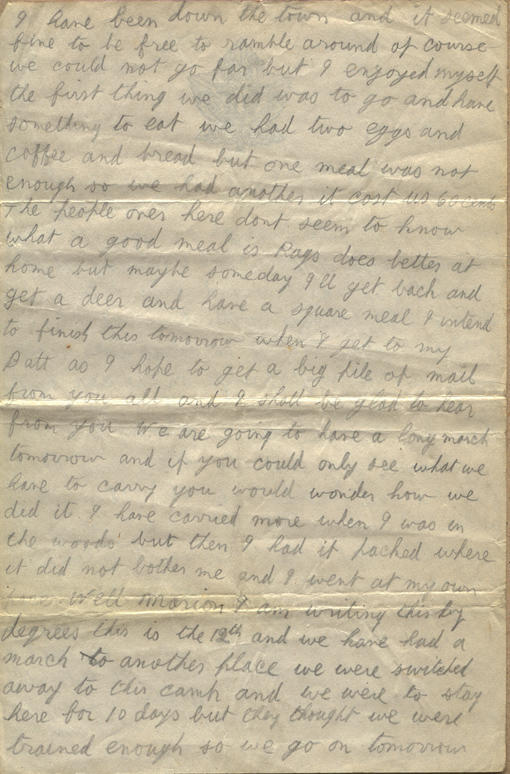 I have been down the town and it seemed
fine to be free to ramble around of course
we could not go far but I enjoyed myself
the first thing we did was to go and have
something to eat we had two eggs and
coffee and bread but one meal was not
enough so we had another it cost us 60 cents
The people over here dont seem to know
what a good meal is Rags does better at
home but maybe someday I'll get back and
get a deer and have a square meal I intend
to finish this tomorrow when I get to my
Batt as I hope to get a big pile of mail
from you all and I shall be glad to hear
from you We are going to have a long march
tomorrow and if you could only see what we
have to carry you would wonder how we
did it I have carried more when I was in
the woods but then I had it packed where
it did not bother me and I went at my own
Well Marion I am writing this by
degrees this is the 12th and we have had a
march to another place we were switched
away to this camp and we were to stay
here for 10 days but they thought we were
trained enough so we go on tomorrow